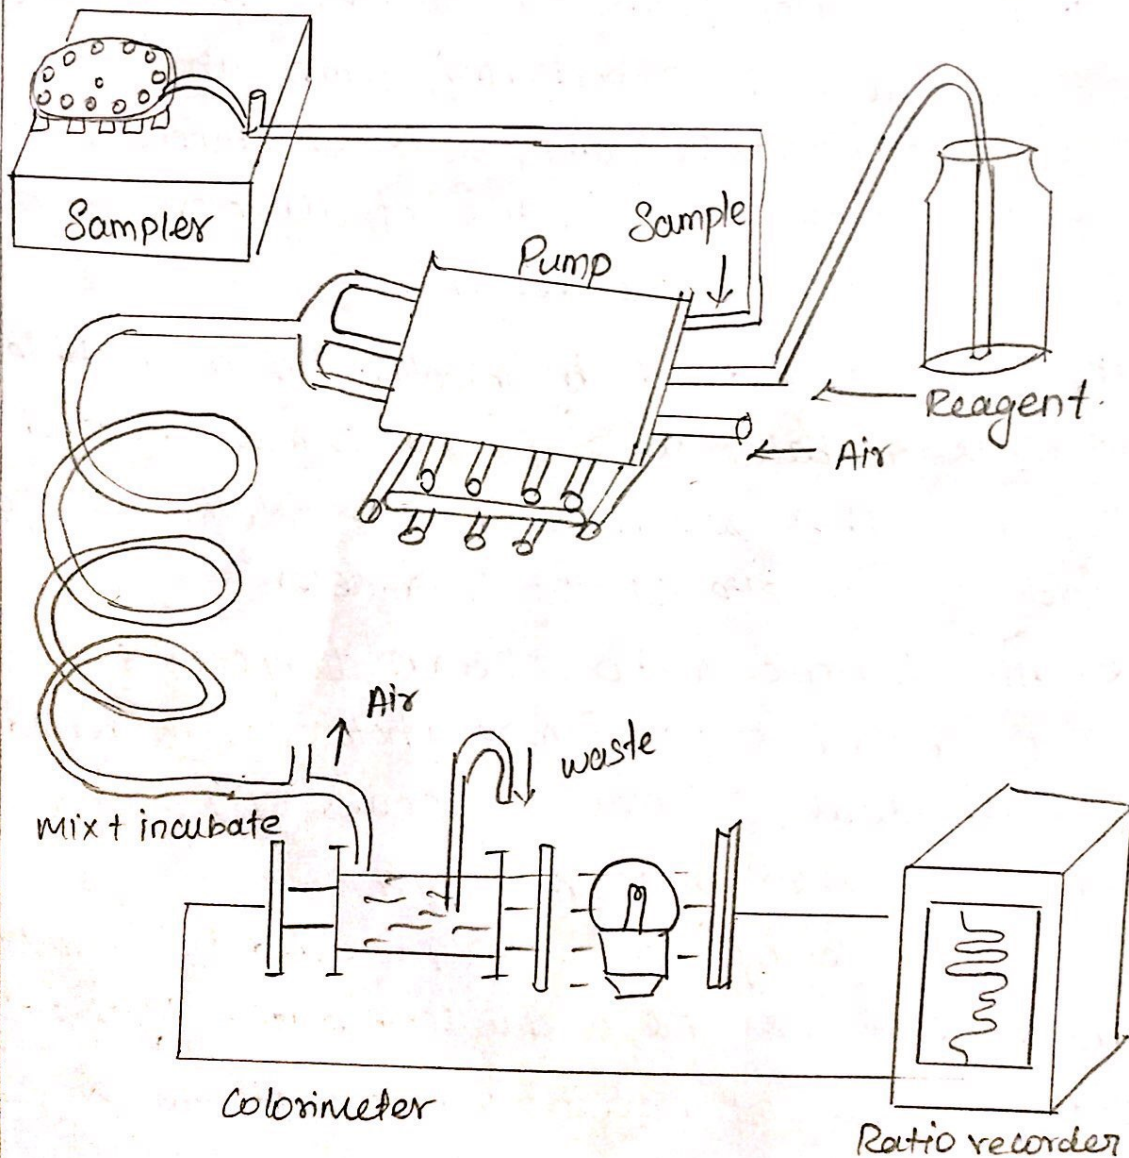 Sampler
Pump
Sample
Reagent.
Air
Air
waste
mix + incubate
Colorimeter
Ratio recorder